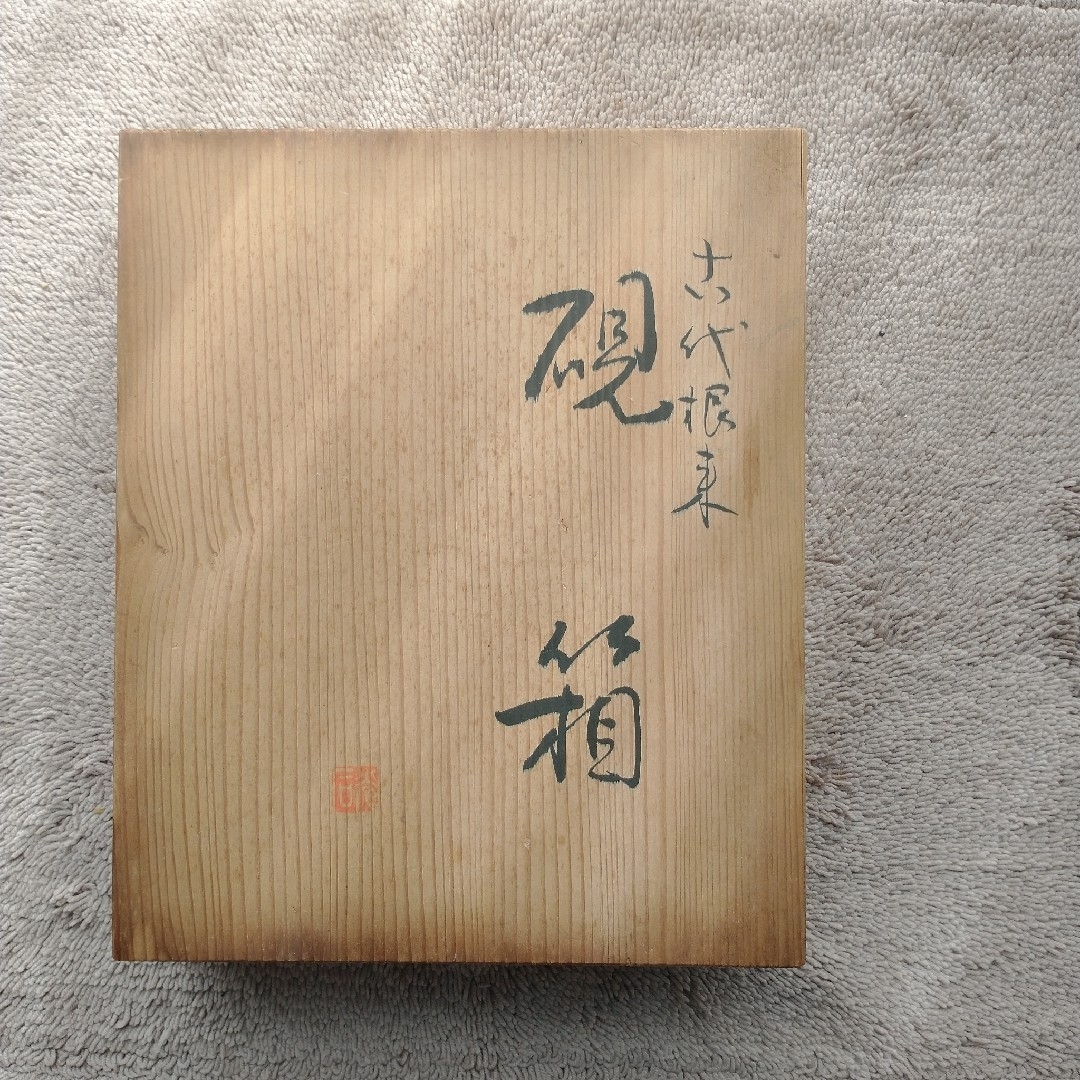 古代根来
硯箱